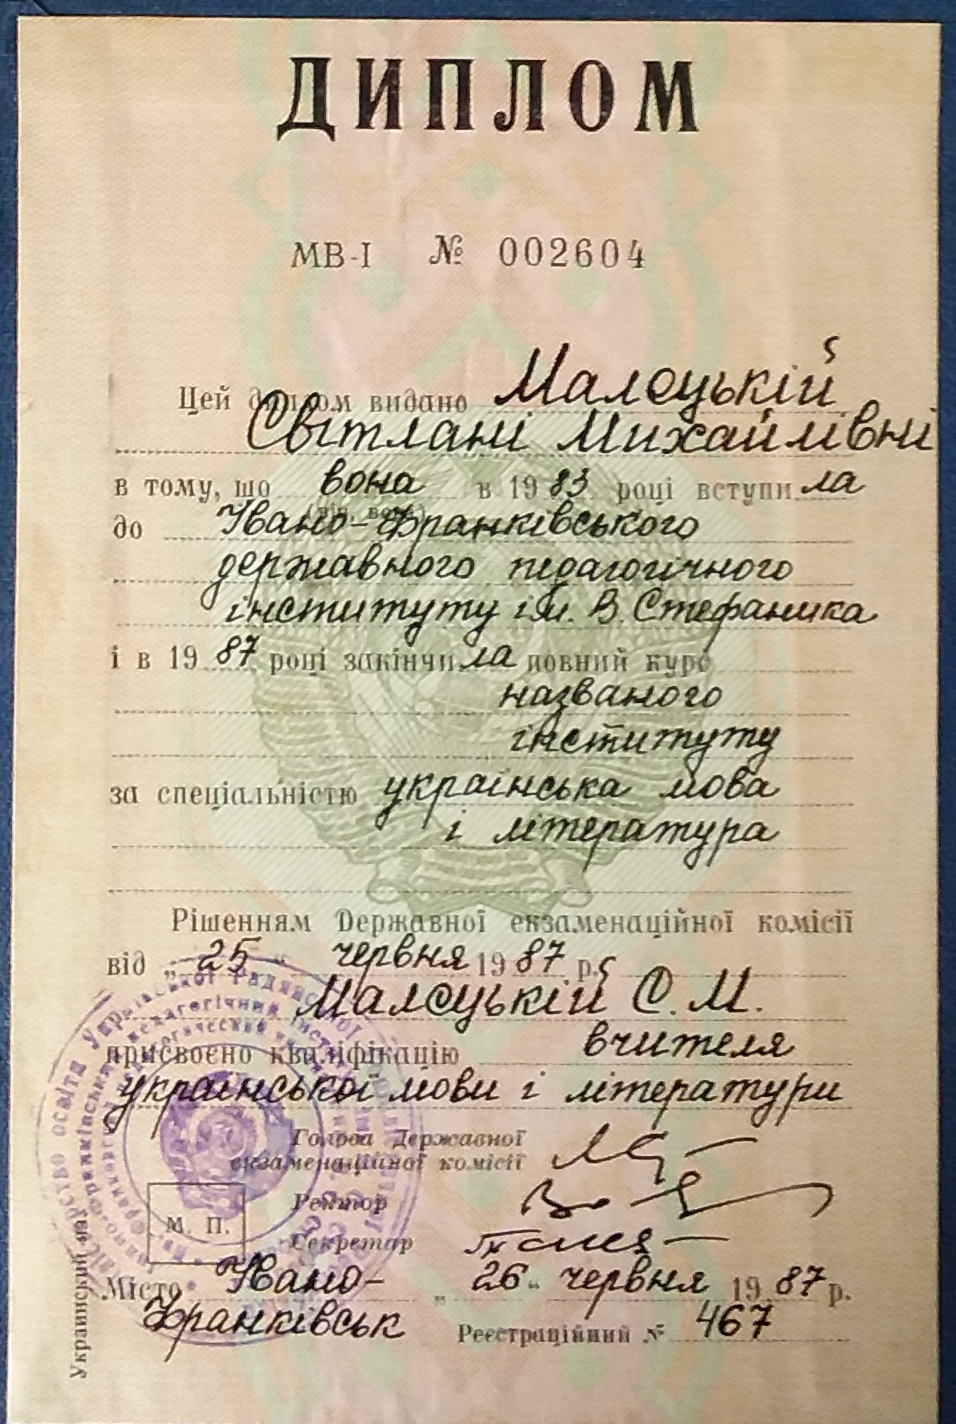 ДИПЛОМ
МВ-І № 002604
Цей диплом видано Малецькій
Світлані Михайлівні
в тому, що вона в 1983 році вступила
(він, вона)
до Івано-Франківського
державного педагогічного
інституту ім. В. Стефаника
і в 1987 році закінчила повний курс
названого
інституту
за спеціальністю українська мова
і література
Рішенням Державної екзаменаційної комісії
від „25“ червня 1987 р.
Малецькій С. М.
присвоєно кваліфікацію вчителя
української мови і літератури
Голова Державної
екзаменаційної комісії
Ректор
М. П.
Секретар
Місто Івано-
Франківськ
„26“ червня 1987 р.
Реєстраційний № 467
Украинский